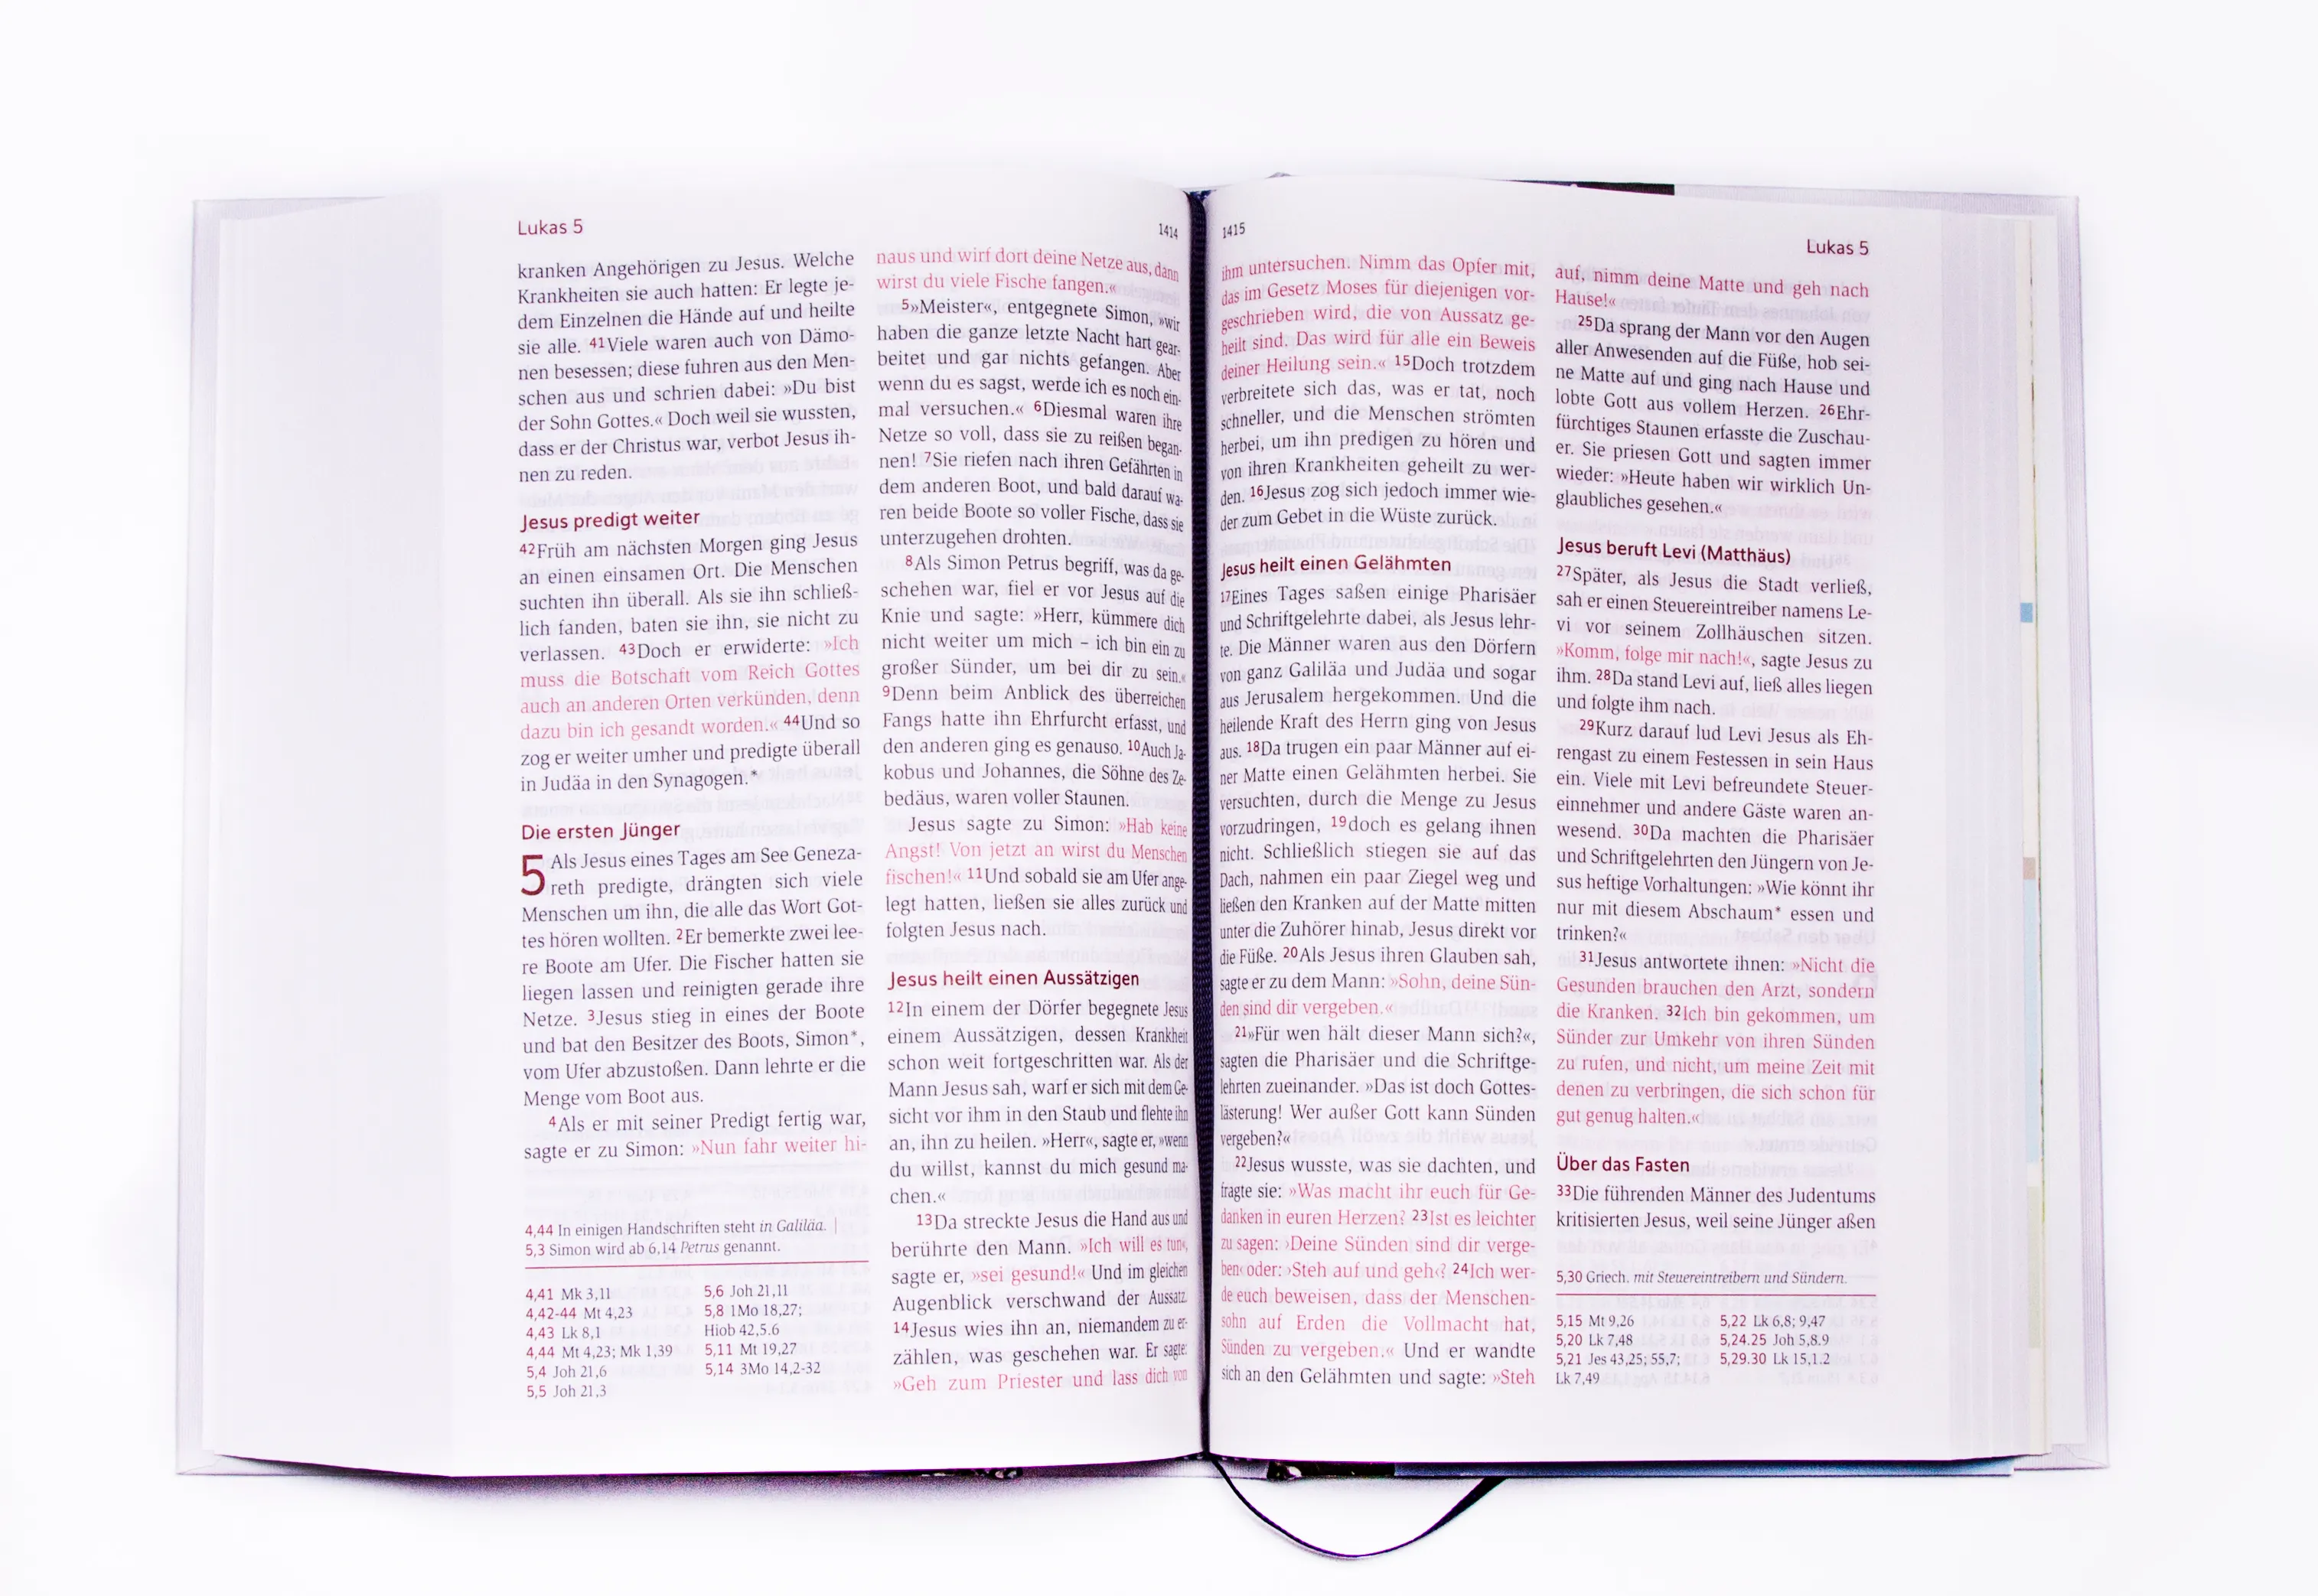 Lukas 5
1414
kranken Angehörigen zu Jesus. Welche
Krankheiten sie auch hatten: Er legte je-
dem Einzelnen die Hände auf und heilte
sie alle. 41Viele waren auch von Dämo-
nen besessen; diese fuhren aus den Men-
schen aus und schrien dabei: »Du bist
der Sohn Gottes.« Doch weil sie wussten,
dass er der Christus war, verbot Jesus ih-
nen zu reden.
Jesus predigt weiter
42Früh am nächsten Morgen ging Jesus
an einen einsamen Ort. Die Menschen
suchten ihn überall. Als sie ihn schließ-
lich fanden, baten sie ihn, sie nicht zu
verlassen. 43Doch er erwiderte: »Ich
muss die Botschaft vom Reich Gottes
auch an anderen Orten verkünden, denn
dazu bin ich gesandt worden.« 44Und so
zog er weiter umher und predigte überall
in Judäa in den Synagogen.*
Die ersten Jünger
5 Als Jesus eines Tages am See Geneza-
reth predigte, drängten sich viele
Menschen um ihn, die alle das Wort Got-
tes hören wollten. 2Er bemerkte zwei lee-
re Boote am Ufer. Die Fischer hatten sie
liegen lassen und reinigten gerade ihre
Netze. 3Jesus stieg in eines der Boote
und bat den Besitzer des Boots, Simon*,
vom Ufer abzustoßen. Dann lehrte er die
Menge vom Boot aus.
4Als er mit seiner Predigt fertig war,
sagte er zu Simon: »Nun fahr weiter hi-
4,44 In einigen Handschriften steht in Galiläa. |
5,3 Simon wird ab 6,14 Petrus genannt.
4,41 Mk 3,11
4,42-44 Mt 4,23
4,43 Lk 8,1
4,44 Mt 4,23; Mk 1,39
5,4 Joh 21,6
5,5 Joh 21,3
5,6 Joh 21,11
5,8 1Mo 18,27;
Hiob 42,5.6
5,11 Mt 19,27
5,14 3Mo 14,2-32
naus und wirf dort deine Netze aus, dann
wirst du viele Fische fangen.«
5»Meister«, entgegnete Simon, »wir
haben die ganze letzte Nacht hart gear-
beitet und gar nichts gefangen. Aber
wenn du es sagst, werde ich es noch ein-
mal versuchen.« 6Diesmal waren ihre
Netze so voll, dass sie zu reißen began-
nen! 7Sie riefen nach ihren Gefährten in
dem anderen Boot, und bald darauf wa-
ren beide Boote so voller Fische, dass sie
unterzugehen drohten.
8Als Simon Petrus begriff, was da ge-
schehen war, fiel er vor Jesus auf die
Knie und sagte: »Herr, kümmere dich
nicht weiter um mich – ich bin ein zu
großer Sünder, um bei dir zu sein.«
9Denn beim Anblick des überreichen
Fangs hatte ihn Ehrfurcht erfasst, und
den anderen ging es genauso. 10Auch Ja-
kobus und Johannes, die Söhne des Ze-
bedäus, waren voller Staunen.
Jesus sagte zu Simon: »Hab keine
Angst! Von jetzt an wirst du Menschen
fischen!« 11Und sobald sie am Ufer ange-
legt hatten, ließen sie alles zurück und
folgten Jesus nach.
Jesus heilt einen Aussätzigen
12In einem der Dörfer begegnete Jesus
einem Aussätzigen, dessen Krankheit
schon weit fortgeschritten war. Als der
Mann Jesus sah, warf er sich mit dem Ge-
sicht vor ihm in den Staub und flehte ihn
an, ihn zu heilen. »Herr«, sagte er, »wenn
du willst, kannst du mich gesund ma-
chen.«
13Da streckte Jesus die Hand aus und
berührte den Mann. »Ich will es tun«,
sagte er, »sei gesund!« Und im gleichen
Augenblick verschwand der Aussatz.
14Jesus wies ihn an, niemandem zu er-
zählen, was geschehen war. Er sagte:
»Geh zum Priester und lass dich von
1415
Lukas 5
ihm untersuchen. Nimm das Opfer mit,
das im Gesetz Moses für diejenigen vor-
geschrieben wird, die von Aussatz ge-
heilt sind. Das wird für alle ein Beweis
deiner Heilung sein.« 15Doch trotzdem
verbreitete sich das, was er tat, noch
schneller, und die Menschen strömten
herbei, um ihn predigen zu hören und
von ihren Krankheiten geheilt zu wer-
den. 16Jesus zog sich jedoch immer wie-
der zum Gebet in die Wüste zurück.
Jesus heilt einen Gelähmten
17Eines Tages saßen einige Pharisäer
und Schriftgelehrte dabei, als Jesus lehr-
te. Die Männer waren aus den Dörfern
von ganz Galiläa und Judäa und sogar
aus Jerusalem hergekommen. Und die
heilende Kraft des Herrn ging von Jesus
aus. 18Da trugen ein paar Männer auf ei-
ner Matte einen Gelähmten herbei. Sie
versuchten, durch die Menge zu Jesus
vorzudringen, 19doch es gelang ihnen
nicht. Schließlich stiegen sie auf das
Dach, nahmen ein paar Ziegel weg und
ließen den Kranken auf der Matte mitten
unter die Zuhörer hinab, Jesus direkt vor
die Füße. 20Als Jesus ihren Glauben sah,
sagte er zu dem Mann: »Sohn, deine Sün-
den sind dir vergeben.«
21»Für wen hält dieser Mann sich?«,
sagten die Pharisäer und die Schriftge-
lehrten zueinander. »Das ist doch Gottes-
lästerung! Wer außer Gott kann Sünden
vergeben?«
22Jesus wusste, was sie dachten, und
fragte sie: »Was macht ihr euch für Ge-
danken in euren Herzen? 23Ist es leichter
zu sagen: ›Deine Sünden sind dir verge-
ben‹ oder: ›Steh auf und geh‹? 24Ich wer-
de euch beweisen, dass der Menschen-
sohn auf Erden die Vollmacht hat,
Sünden zu vergeben.« Und er wandte
sich an den Gelähmten und sagte: »Steh
auf, nimm deine Matte und geh nach
Hause!«
25Da sprang der Mann vor den Augen
aller Anwesenden auf die Füße, hob sei-
ne Matte auf und ging nach Hause und
lobte Gott aus vollem Herzen. 26Ehr-
fürchtiges Staunen erfasste die Zuschau-
er. Sie priesen Gott und sagten immer
wieder: »Heute haben wir wirklich Un-
glaubliches gesehen.«
Jesus beruft Levi (Matthäus)
27Später, als Jesus die Stadt verließ,
sah er einen Steuereintreiber namens Le-
vi vor seinem Zollhäuschen sitzen.
»Komm, folge mir nach!«, sagte Jesus zu
ihm. 28Da stand Levi auf, ließ alles liegen
und folgte ihm nach.
29Kurz darauf lud Levi Jesus als Eh-
rengast zu einem Festessen in sein Haus
ein. Viele mit Levi befreundete Steuer-
einnehmer und andere Gäste waren an-
wesend. 30Da machten die Pharisäer
und Schriftgelehrten den Jüngern von Je-
sus heftige Vorhaltungen: »Wie könnt ihr
nur mit diesem Abschaum* essen und
trinken?«
31Jesus antwortete ihnen: »Nicht die
Gesunden brauchen den Arzt, sondern
die Kranken. 32Ich bin gekommen, um
Sünder zur Umkehr von ihren Sünden
zu rufen, und nicht, um meine Zeit mit
denen zu verbringen, die sich schon für
gut genug halten.«
Über das Fasten
33Die führenden Männer des Judentums
kritisierten Jesus, weil seine Jünger aßen
5,30 Griech. mit Steuereintreibern und Sündern.
5,15 Mt 9,26
5,20 Lk 7,48
5,21 Jes 43,25; 55,7;
Lk 7,49
5,22 Lk 6,8; 9,47
5,24.25 Joh 5,8.9
5,29.30 Lk 15,1.2